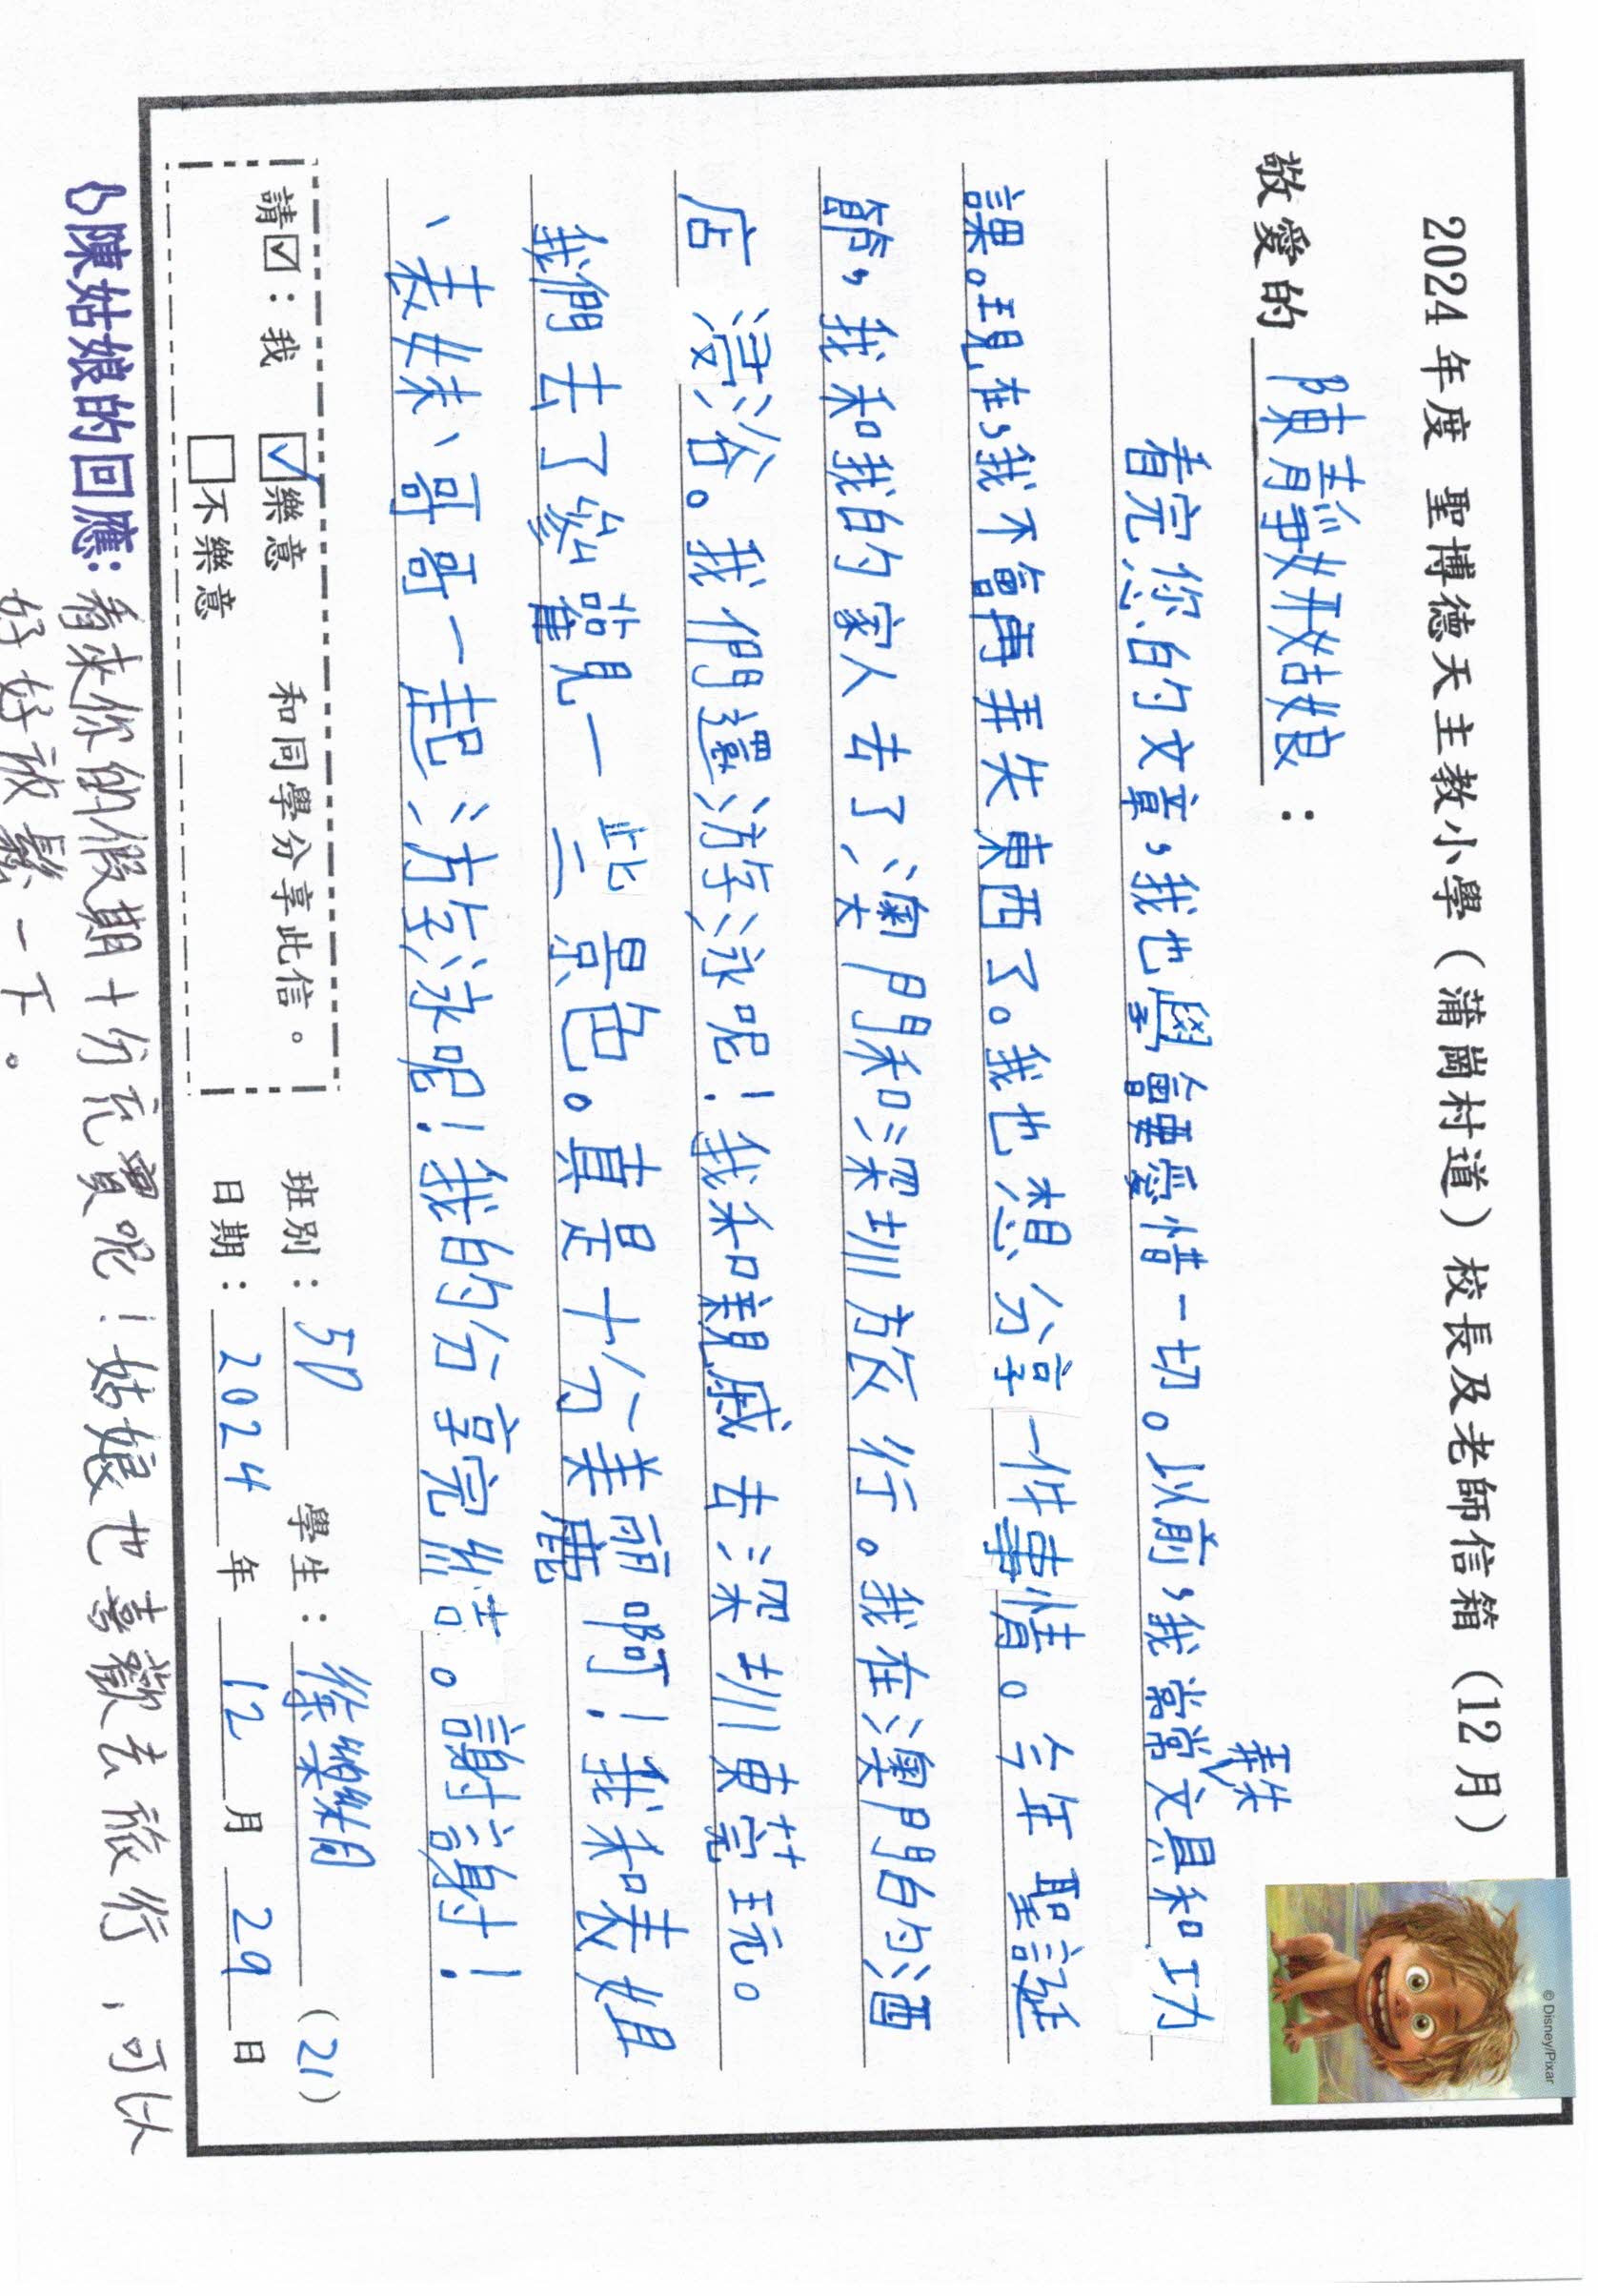 2024年度 聖博德天主教小學（蒲崗村道）校長及老師信箱（12月）
© Disney/Pixar
敬愛的 陳靜妍姑娘：
看完您的文章，我也學會要愛惜一切。以前，我常常弄失文具和功
課。現在，我不會再弄失東西了。我也想分享一件事情。今年聖誕
節，我和我的家人去了澳門和深圳旅行。我在澳門的酒
店浸浴。我們還游泳呢！我和親戚去深圳東莞玩。
我們去了參觀一些景色。真是十分美麗啊！我和表姐
、表妹、哥哥一起游泳呢！我的分享完結。謝謝！
請☑：我 ☑樂意 和同學分享此信。
□不樂意
班別：5D 學生：徐樂 (21)
日期：2024年12月29日
陳姑娘的回應：看來你的假期十分充實呢！姑娘也喜歡去旅行，可以
好好放鬆一下。